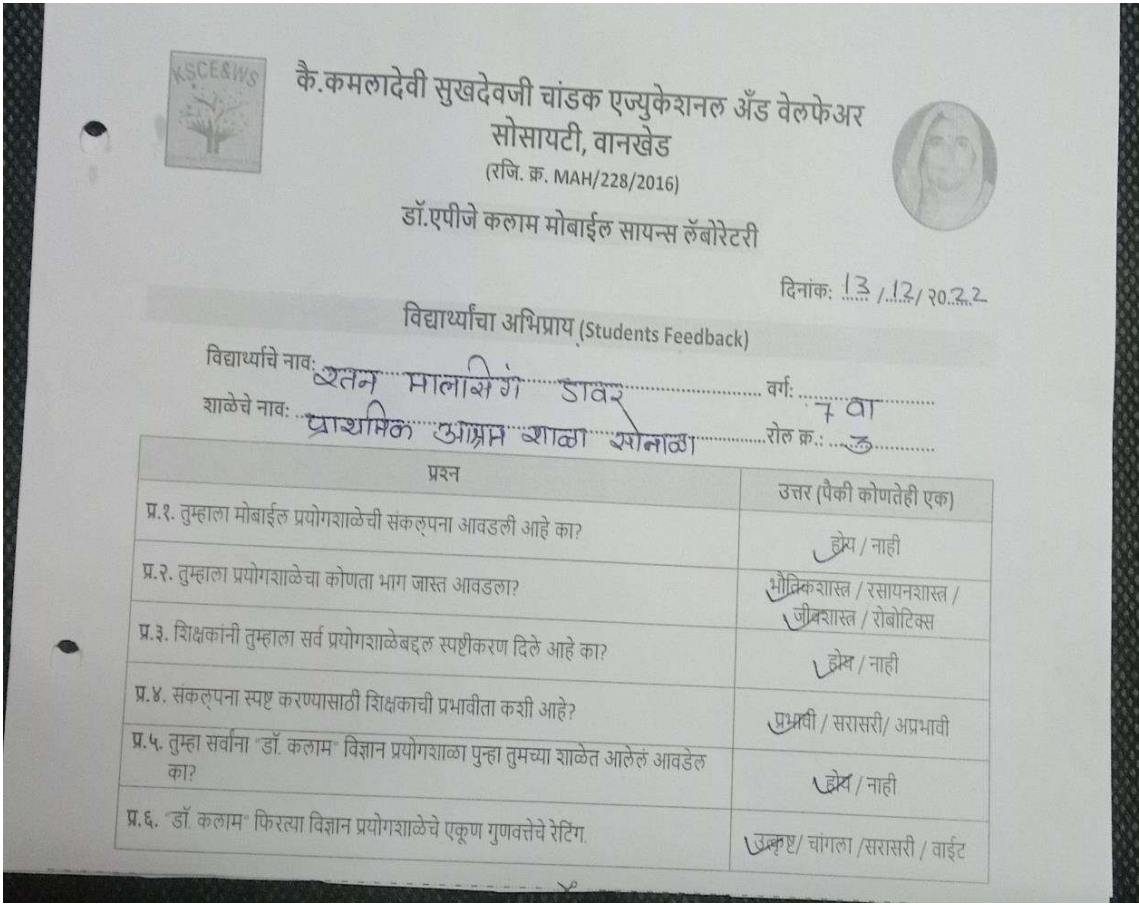 KSCE&WS
कै.कमलादेवी सुखदेवजी चांडक एज्युकेशनल अँड वेलफेअर
सोसायटी, वानखेड
(रजि. क्र. MAH/228/2016)
डॉ.एपीजे कलाम मोबाईल सायन्स लॅबोरेटरी
दिनांक: 13/12/२०22
विद्यार्थ्यांचा अभिप्राय (Students Feedback)
विद्यार्थ्याचे नाव: रतन मालसिंग डावर वर्ग: 7 वा
शाळेचे नाव: प्राथमिक आश्रम शाळा सोनाळा रोल क्र.: 3
प्रश्न उत्तर (पैकी कोणतेही एक)
प्र.१. तुम्हाला मोबाईल प्रयोगशाळेची संकल्पना आवडली आहे का? होय / नाही
प्र.२. तुम्हाला प्रयोगशाळेचा कोणता भाग जास्त आवडला? भौतिकशास्त्र / रसायनशास्त्र /
जीवशास्त्र / रोबोटिक्स
प्र.३. शिक्षकांनी तुम्हाला सर्व प्रयोगशाळेबद्दल स्पष्टीकरण दिले आहे का? होय / नाही
प्र.४. संकल्पना स्पष्ट करण्यासाठी शिक्षकाची प्रभावीता कशी आहे? प्रभावी / सरासरी/ अप्रभावी
प्र.५. तुम्हा सर्वांना "डॉ. कलाम" विज्ञान प्रयोगशाळा पुन्हा तुमच्या शाळेत आलेलं आवडेल
का? होय / नाही
प्र.६. "डॉ. कलाम" फिरत्या विज्ञान प्रयोगशाळेचे एकूण गुणवत्तेचे रेटिंग. उत्कृष्ट/ चांगला /सरासरी / वाईट